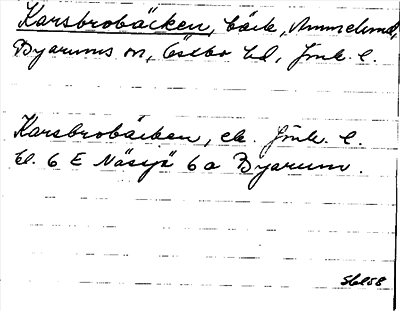 Karsbrobäcken, bäck, Ammelund,
Byarums sn, Östbo hd, Jönk. l.
Karsbrobäcken, ek. Jönk. l.
bl. 6 E Näsjö 6 a Byarum.
SGL58